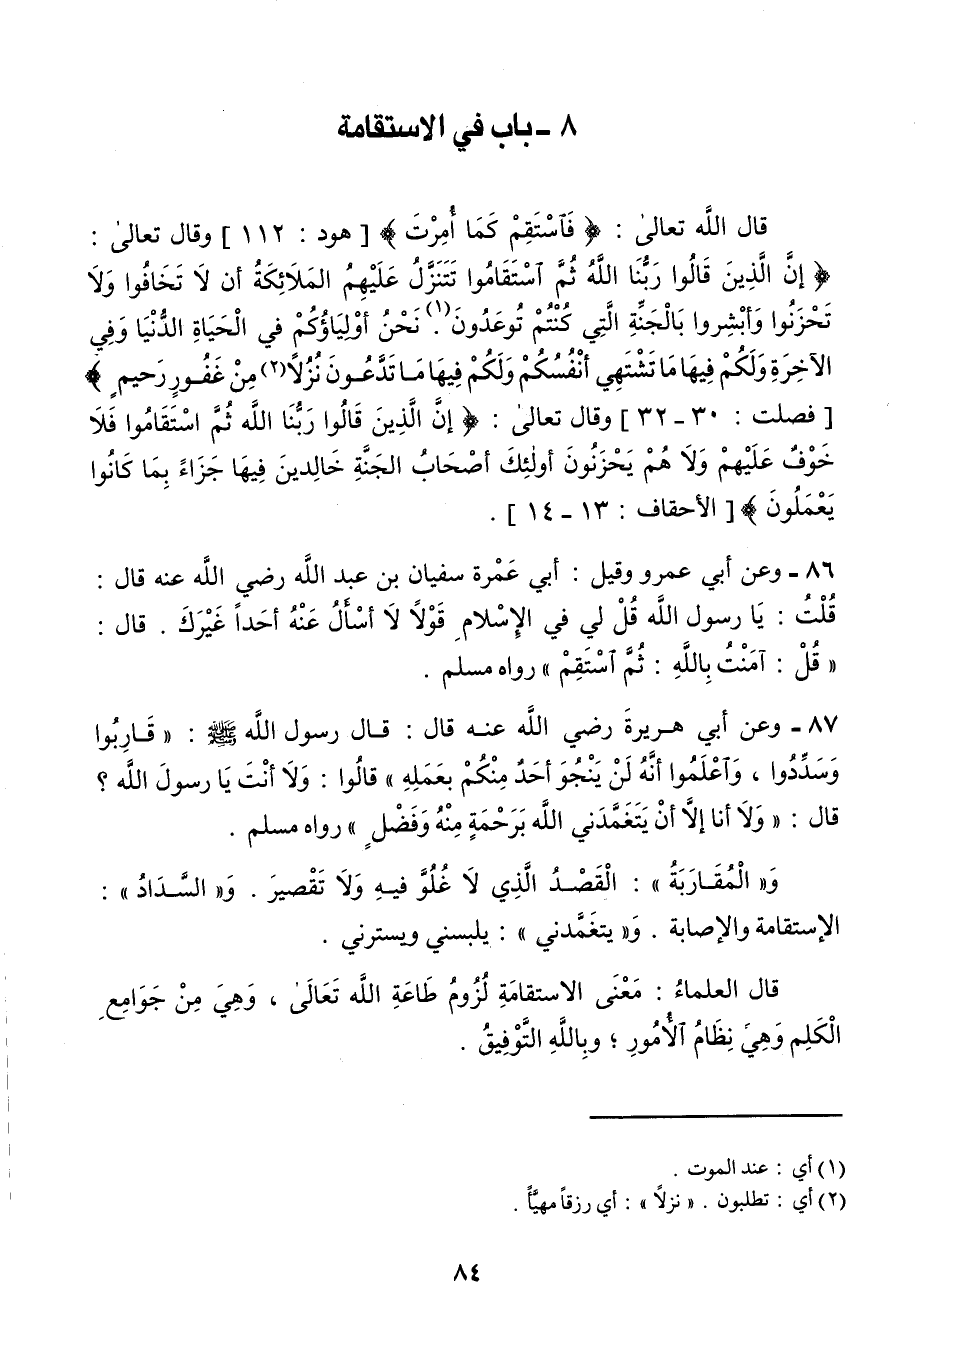 ٨ - باب في الاستقامة
قال اللَّه تعالىٰ : ﴿ فَٱسْتَقِمْ كَمَا أُمِرْتَ ﴾ [ هود : ١١٢ ] وقال تعالىٰ :
﴿ إِنَّ الَّذِينَ قَالُوا رَبُّنَا اللَّهُ ثُمَّ ٱسْتَقَامُوا تَتَنَزَّلُ عَلَيْهِمُ المَلَائِكَةُ أن لَا تَخَافُوا وَلَا
تَحْزَنُوا وَأَبْشِروا بَالْجَنَّةِ الَّتِي كُنْتُمْ تُوعَدُونَ(١). نَحْنُ أَوْلِيَاؤُكُمْ في الْحَيَاةِ الدُّنْيَا وَفِي
الآخِرَةِ وَلَكُمْ فِيهَا مَا تَشْتَهِي أَنْفُسُكُمْ وَلَكُمْ فِيهَا مَا تَدَّعُونَ نُزُلًا(٢) مِنْ غَفُورٍ رَحيمٍ ﴾
[ فصلت : ٣٠ - ٣٢ ] وقال تعالىٰ : ﴿ إِنَّ الَّذِينَ قَالُوا رَبُّنَا الله ثُمَّ اسْتَقَامُوا فَلَا
خَوْفٌ عَلَيْهِمْ وَلَا هُمْ يَحْزَنُونَ أولٰئِكَ أصْحَابُ الجَنَّةِ خَالِدينَ فِيهَا جَزَاءً بِمَا كَانُوا
يَعْمَلُونَ ﴾ [ الأحقاف : ١٣ - ١٤ ] .
٨٦ - وعن أبي عمرو وقيل : أبي عَمْرة سفيان بن عبد الله رضي الله عنه قال :
قُلْتُ : يَا رسول اللَّه قُلْ لي في الإِسْلامِ قَوْلًا لَا أَسْأَلُ عَنْهُ أحَداً غَيْرَكَ . قال :
« قُلْ : آمَنْتُ بِاللَّهِ : ثُمَّ ٱسْتَقِمْ » رواه مسلم .
٨٧ - وعن أبي هريرةَ رضي اللَّه عنه قال : قال رسول اللَّه ﷺ : « قَارِبُوا
وَسَدِّدُوا ، وَٱعْلَمُوا أَنَّهُ لَنْ يَنْجُوَ أحَدٌ مِنْكُمْ بِعَمَلِهِ » قالُوا : وَلَا أنْتَ يَا رسولَ اللَّه ؟
قال : « وَلَا أنا إلَّا أنْ يَتَغَمَّدَني اللَّه بَرَحْمَةٍ مِنْهُ وَفَضْلٍ » رواه مسلم .
وَ« الْمُقَارَبَةُ » : الْقَصْدُ الَّذِي لَا غُلُوَّ فيهِ وَلَا تَقْصيرَ . وَ« السَّدَادُ » :
الإستقامة والإصابة . وَ« يتغَمَّدني » : يلبسني ويسترني .
قال العلماءُ : مَعْنَى الاستقامَةِ لُزُومُ طَاعَةِ اللَّه تَعَالَىٰ ، وَهِيَ مِنْ جَوَامِعِ
الْكَلِم وَهِيَ نِظَامُ ٱلْأُمُورِ ؛ وبِاللَّهِ التَّوْفِيقُ .
(١) أي : عند الموت .
(٢) أي : تطلبون . « نزلاً » : أي رزقاً مهيَّأً .
٨٤